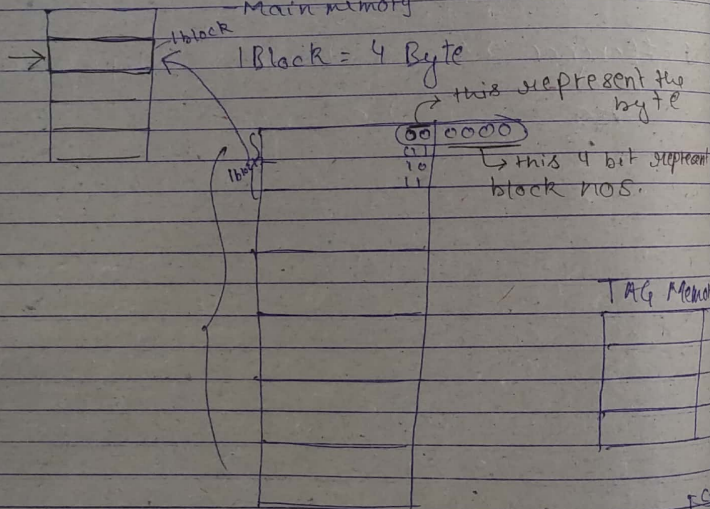 Main memory
1block
1Block = 4 Byte
this represent the
byte
00 0000
01
10
11
this 4 bit represent
block nos.
1block
TAG Memo